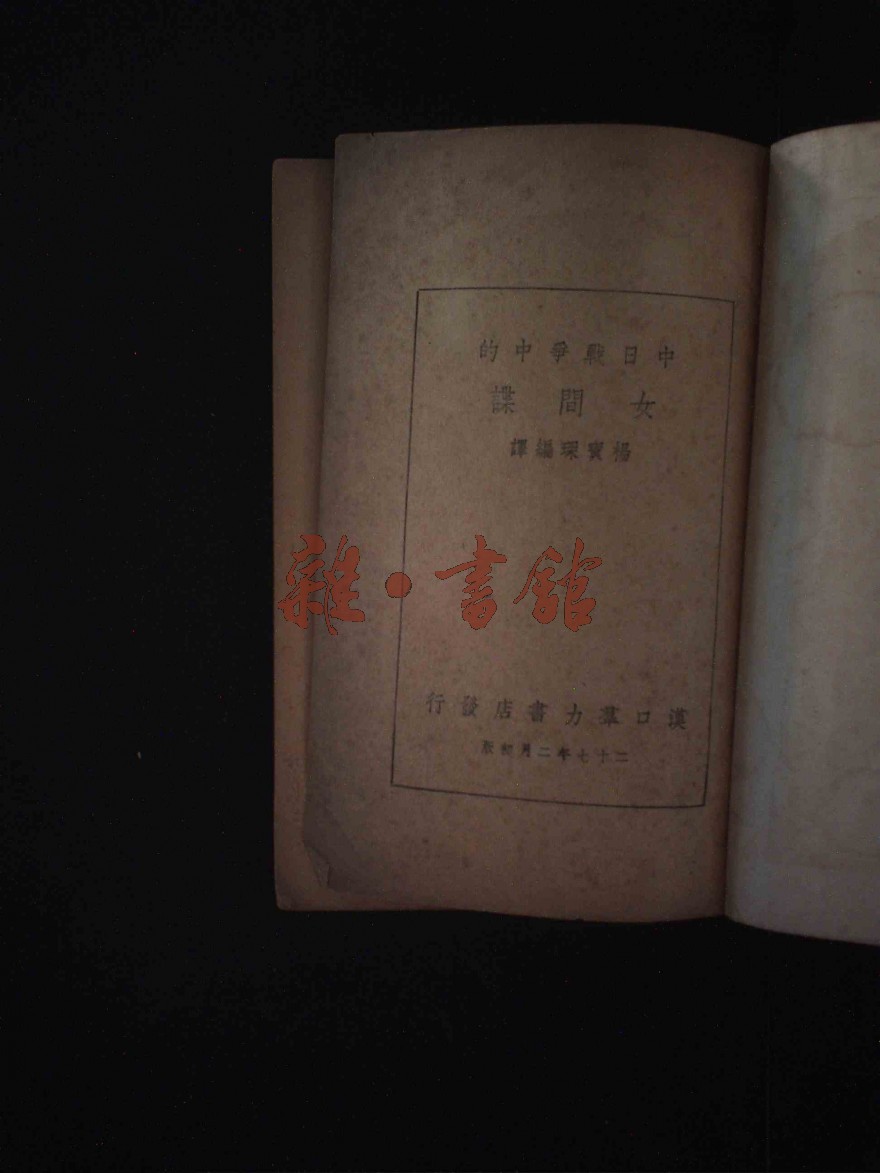 中日戰爭中的
女間諜
楊寶琛編譯
雜·書館
漢口羣力書店發行
二十七年二月初版